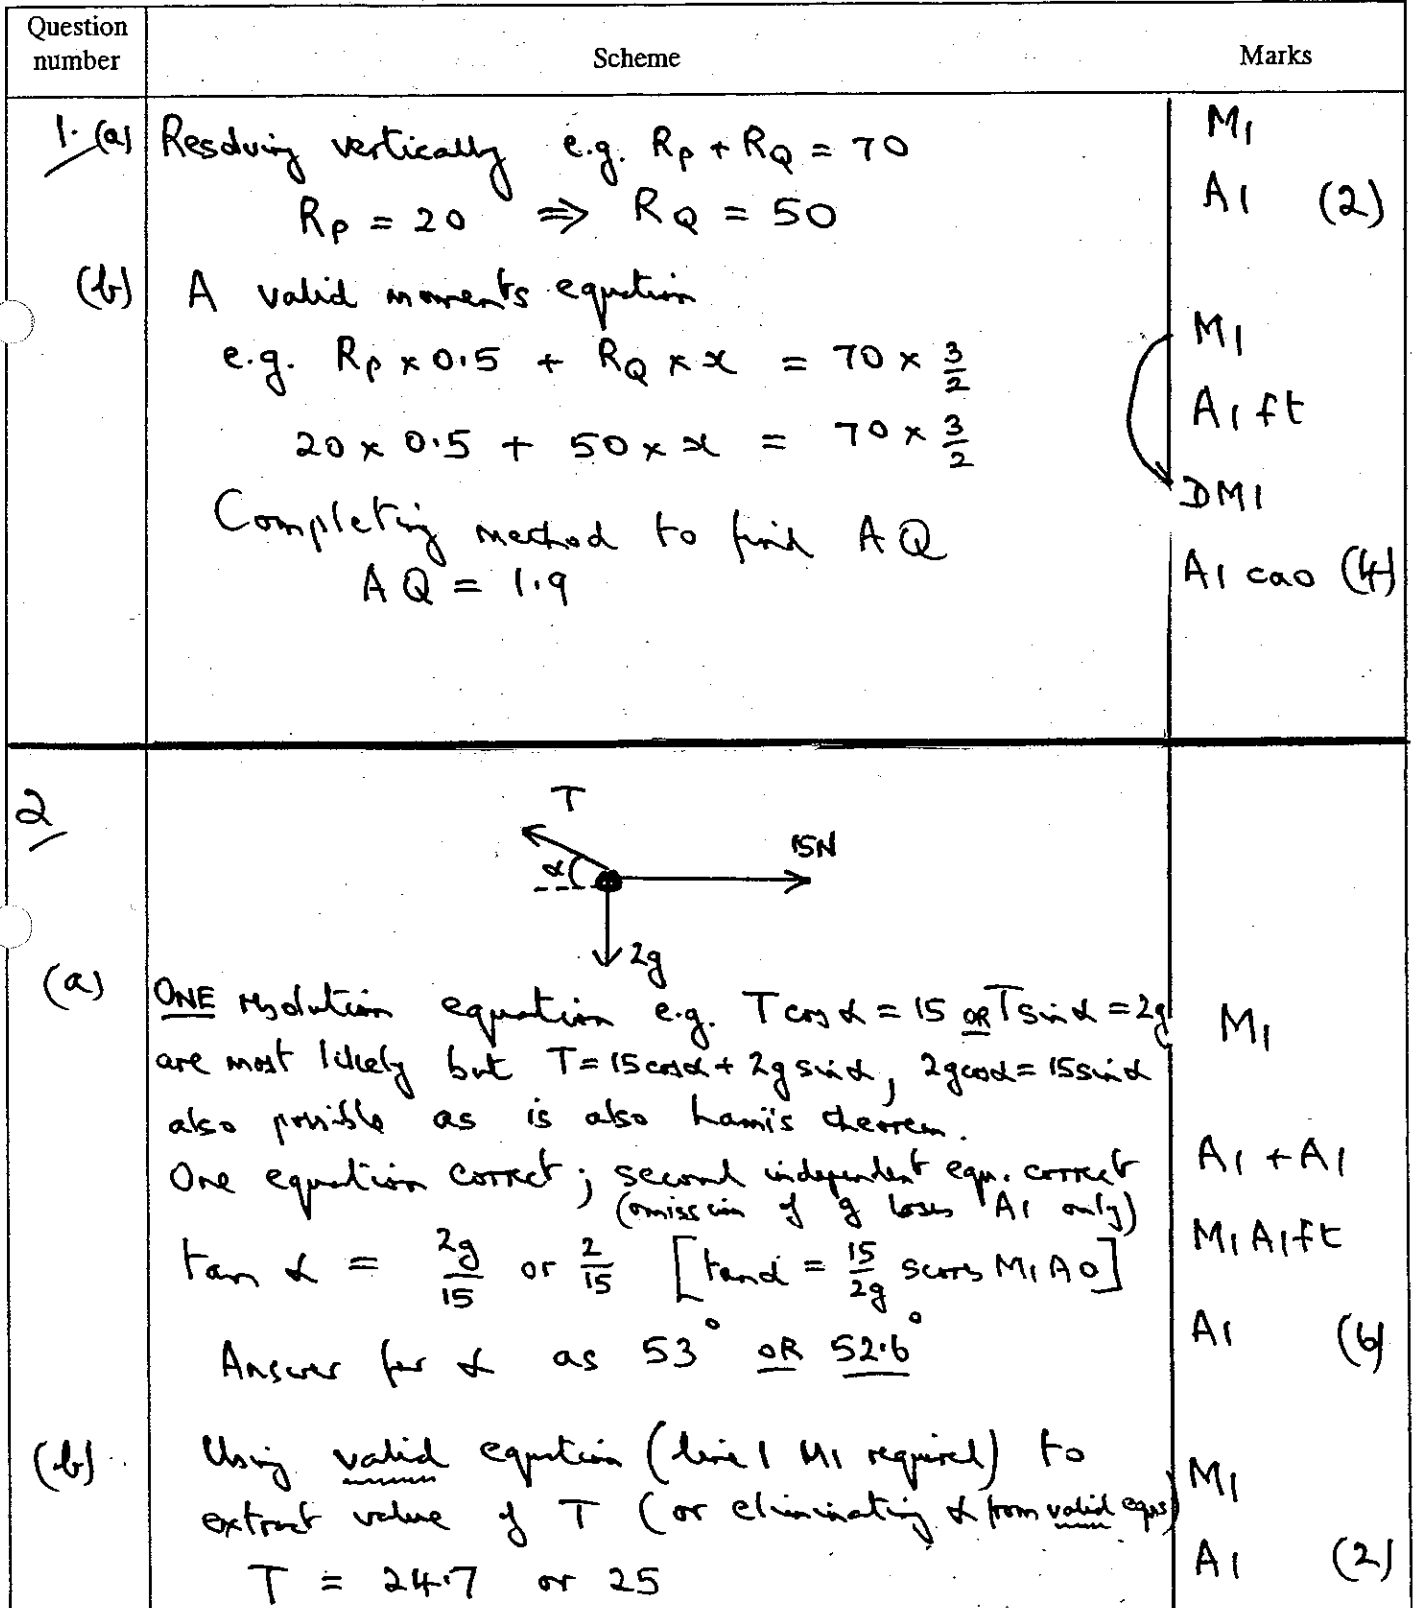 Question number
Scheme
Marks
1. (a) Resolving vertically e.g. R_P + R_Q = 70 M1
R_P = 20 ⇒ R_Q = 50 A1 (2)
(b) A valid moments equation
e.g. R_P × 0.5 + R_Q × x = 70 × 3/2 M1
A1 ft
20 × 0.5 + 50 × x = 70 × 3/2
DM1
Completing method to find AQ
AQ = 1.9 A1 cao (4)
2
T
15N
α
2g
(a) ONE resolution equation e.g. T cos α = 15 OR T sin α = 2g M1
are most likely but T = 15 cos α + 2g sin α, 2g cos α = 15 sin α
also possible as is also Lami's theorem.
One equation correct; second independent eqn. correct A1 + A1
(omission of g loses A1 only)
tan α = 2g/15 or 2/15 [tan α = 15/2g scores M1 A0] M1 A1 ft
Answer for α as 53° OR 52.6° A1 (6)
(b) Using valid equation (line 1 M1 required) to
extract value of T (or eliminating α from valid eqns) M1
T = 24.7 or 25 A1 (2)